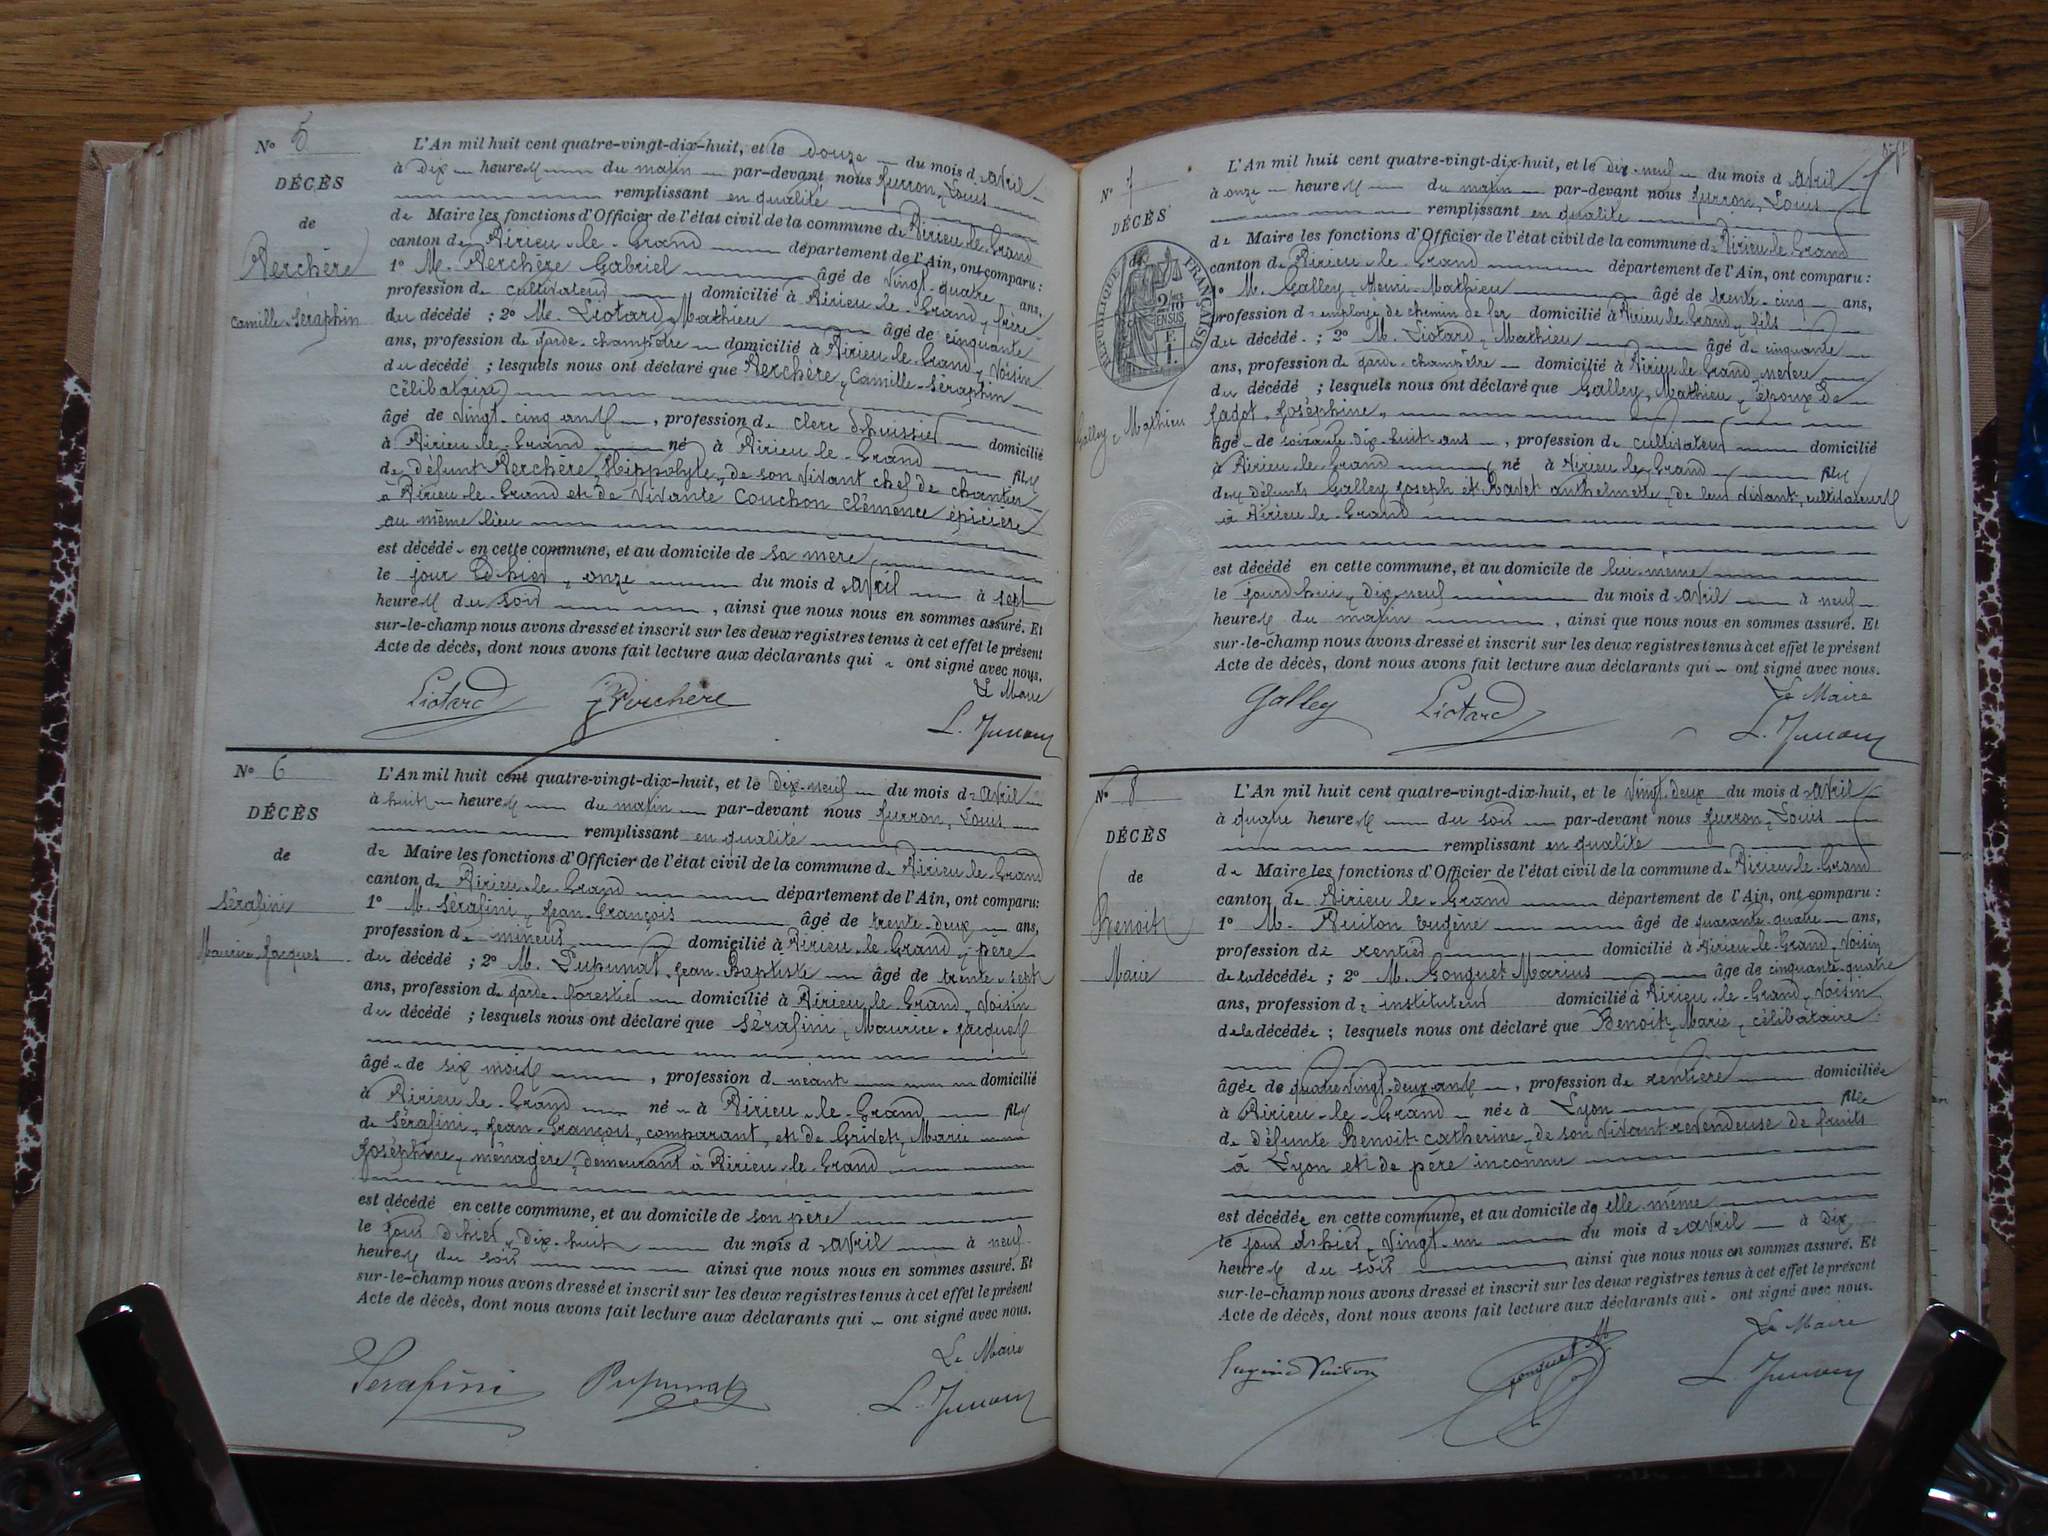 N° 5
DÉCÈS
de
Verchère
Camille-Séraphin
L'An mil huit cent quatre-vingt-dix-huit, et le douze du mois d'avril
à dix heures du matin par-devant nous Jurron, Louis
remplissant en qualité
de Maire les fonctions d'Officier de l'état civil de la commune de Virieu-le-Grand
canton de Virieu-le-Grand département de l'Ain, ont comparu:
1° M. Verchère Gabriel âgé de vingt-quatre ans,
profession de cultivateur domicilié à Virieu-le-Grand, frère
du décédé ; 2° M. Liotard, Mathieu âgé de cinquante
ans, profession de garde-champêtre domicilié à Virieu-le-Grand, voisin
du décédé ; lesquels nous ont déclaré que Verchère, Camille-Séraphin
célibataire
âgé de vingt-cinq ans, profession de clerc d'huissier domicilié
à Virieu-le-Grand né à Virieu-le-Grand fils
de défunt Verchère, Hippolyte, de son vivant chef de chantier
à Virieu-le-Grand et de vivante Couchon Clémence épicière
au même lieu
est décédé en cette commune, et au domicile de sa mère
le jour d'hier, onze du mois d'avril à sept
heures du soir, ainsi que nous nous en sommes assuré. Et
sur-le-champ nous avons dressé et inscrit sur les deux registres tenus à cet effet le présent
Acte de décès, dont nous avons fait lecture aux déclarants qui ont signé avec nous.
Le Maire
Liotard Verchère L. Jurron
N° 6
DÉCÈS
de
Sérafini
Maurice-Jacques
L'An mil huit cent quatre-vingt-dix-huit, et le dix-neuf du mois d'avril
à huit heures du matin par-devant nous Jurron, Louis
remplissant en qualité
de Maire les fonctions d'Officier de l'état civil de la commune de Virieu-le-Grand
canton de Virieu-le-Grand département de l'Ain, ont comparu:
1° M. Sérafini, Jean-François âgé de trente-deux ans,
profession de mineur domicilié à Virieu-le-Grand, père
du décédé ; 2° M. Pupunat, Jean-Baptiste âgé de trente-sept
ans, profession de garde-forestier domicilié à Virieu-le-Grand, voisin
du décédé ; lesquels nous ont déclaré que Sérafini, Maurice-Jacques
âgé de six mois, profession de néant domicilié
à Virieu-le-Grand né à Virieu-le-Grand fils
de Sérafini, Jean-François, comparant, et de Grivet, Marie
Joséphine, ménagère, demeurant à Virieu-le-Grand
est décédé en cette commune, et au domicile de son père
le jour d'hier, dix-huit du mois d'avril à neuf
heures du soir ainsi que nous nous en sommes assuré. Et
sur-le-champ nous avons dressé et inscrit sur les deux registres tenus à cet effet le présent
Acte de décès, dont nous avons fait lecture aux déclarants qui ont signé avec nous.
Le Maire
Serafini Pupunat L. Jurron
N° 7
DÉCÈS
de
RÉPUBLIQUE FRANÇAISE
2/10 EN SUS
Galley, Mathieu
L'An mil huit cent quatre-vingt-dix-huit, et le dix-neuf du mois d'avril
à onze heures du matin par-devant nous Jurron, Louis
remplissant en qualité
de Maire les fonctions d'Officier de l'état civil de la commune de Virieu-le-Grand
canton de Virieu-le-Grand département de l'Ain, ont comparu:
1° M. Galley, Henri-Mathieu âgé de trente-cinq ans,
profession d'employé de chemin de fer domicilié à Virieu-le-Grand, fils
du décédé ; 2° M. Liotard, Mathieu âgé de cinquante
ans, profession de garde-champêtre domicilié à Virieu-le-Grand, neveu
du décédé ; lesquels nous ont déclaré que Galley, Mathieu, époux de
Jagot, Joséphine,
âgé de soixante-dix-huit ans, profession de cultivateur domicilié
à Virieu-le-Grand né à Virieu-le-Grand fils
des défunts Galley Joseph et Ravet Anthelmette, de leur vivant, cultivateurs
à Virieu-le-Grand
est décédé en cette commune, et au domicile de lui-même
le jourd'hui, dix-neuf du mois d'avril à neuf
heures du matin, ainsi que nous nous en sommes assuré. Et
sur-le-champ nous avons dressé et inscrit sur les deux registres tenus à cet effet le présent
Acte de décès, dont nous avons fait lecture aux déclarants qui ont signé avec nous.
Le Maire
Galley Liotard L. Jurron
N° 8
DÉCÈS
de
Benoit
Marie
L'An mil huit cent quatre-vingt-dix-huit, et le vingt-deux du mois d'avril
à quatre heures du soir par-devant nous Jurron, Louis
remplissant en qualité
de Maire les fonctions d'Officier de l'état civil de la commune de Virieu-le-Grand
canton de Virieu-le-Grand département de l'Ain, ont comparu:
1° M. Vuiton Eugène âgé de quarante-quatre ans,
profession de rentier domicilié à Virieu-le-Grand, voisin
de la décédée ; 2° M. Gonguet Marius âgé de cinquante-quatre
ans, profession d'instituteur domicilié à Virieu-le-Grand, voisin
de la décédée ; lesquels nous ont déclaré que Benoit, Marie, célibataire
âgée de quatre-vingt-deux ans, profession de rentière domiciliée
à Virieu-le-Grand née à Lyon fille
de défunte Benoit Catherine, de son vivant revendeuse de fruits
à Lyon et de père inconnu
est décédée en cette commune, et au domicile de elle-même
le jour d'hier, vingt-un du mois d'avril à dix
heures du soir ainsi que nous nous en sommes assuré. Et
sur-le-champ nous avons dressé et inscrit sur les deux registres tenus à cet effet le présent
Acte de décès, dont nous avons fait lecture aux déclarants qui ont signé avec nous.
Le Maire
Eugène Vuiton Gonguet M L. Jurron